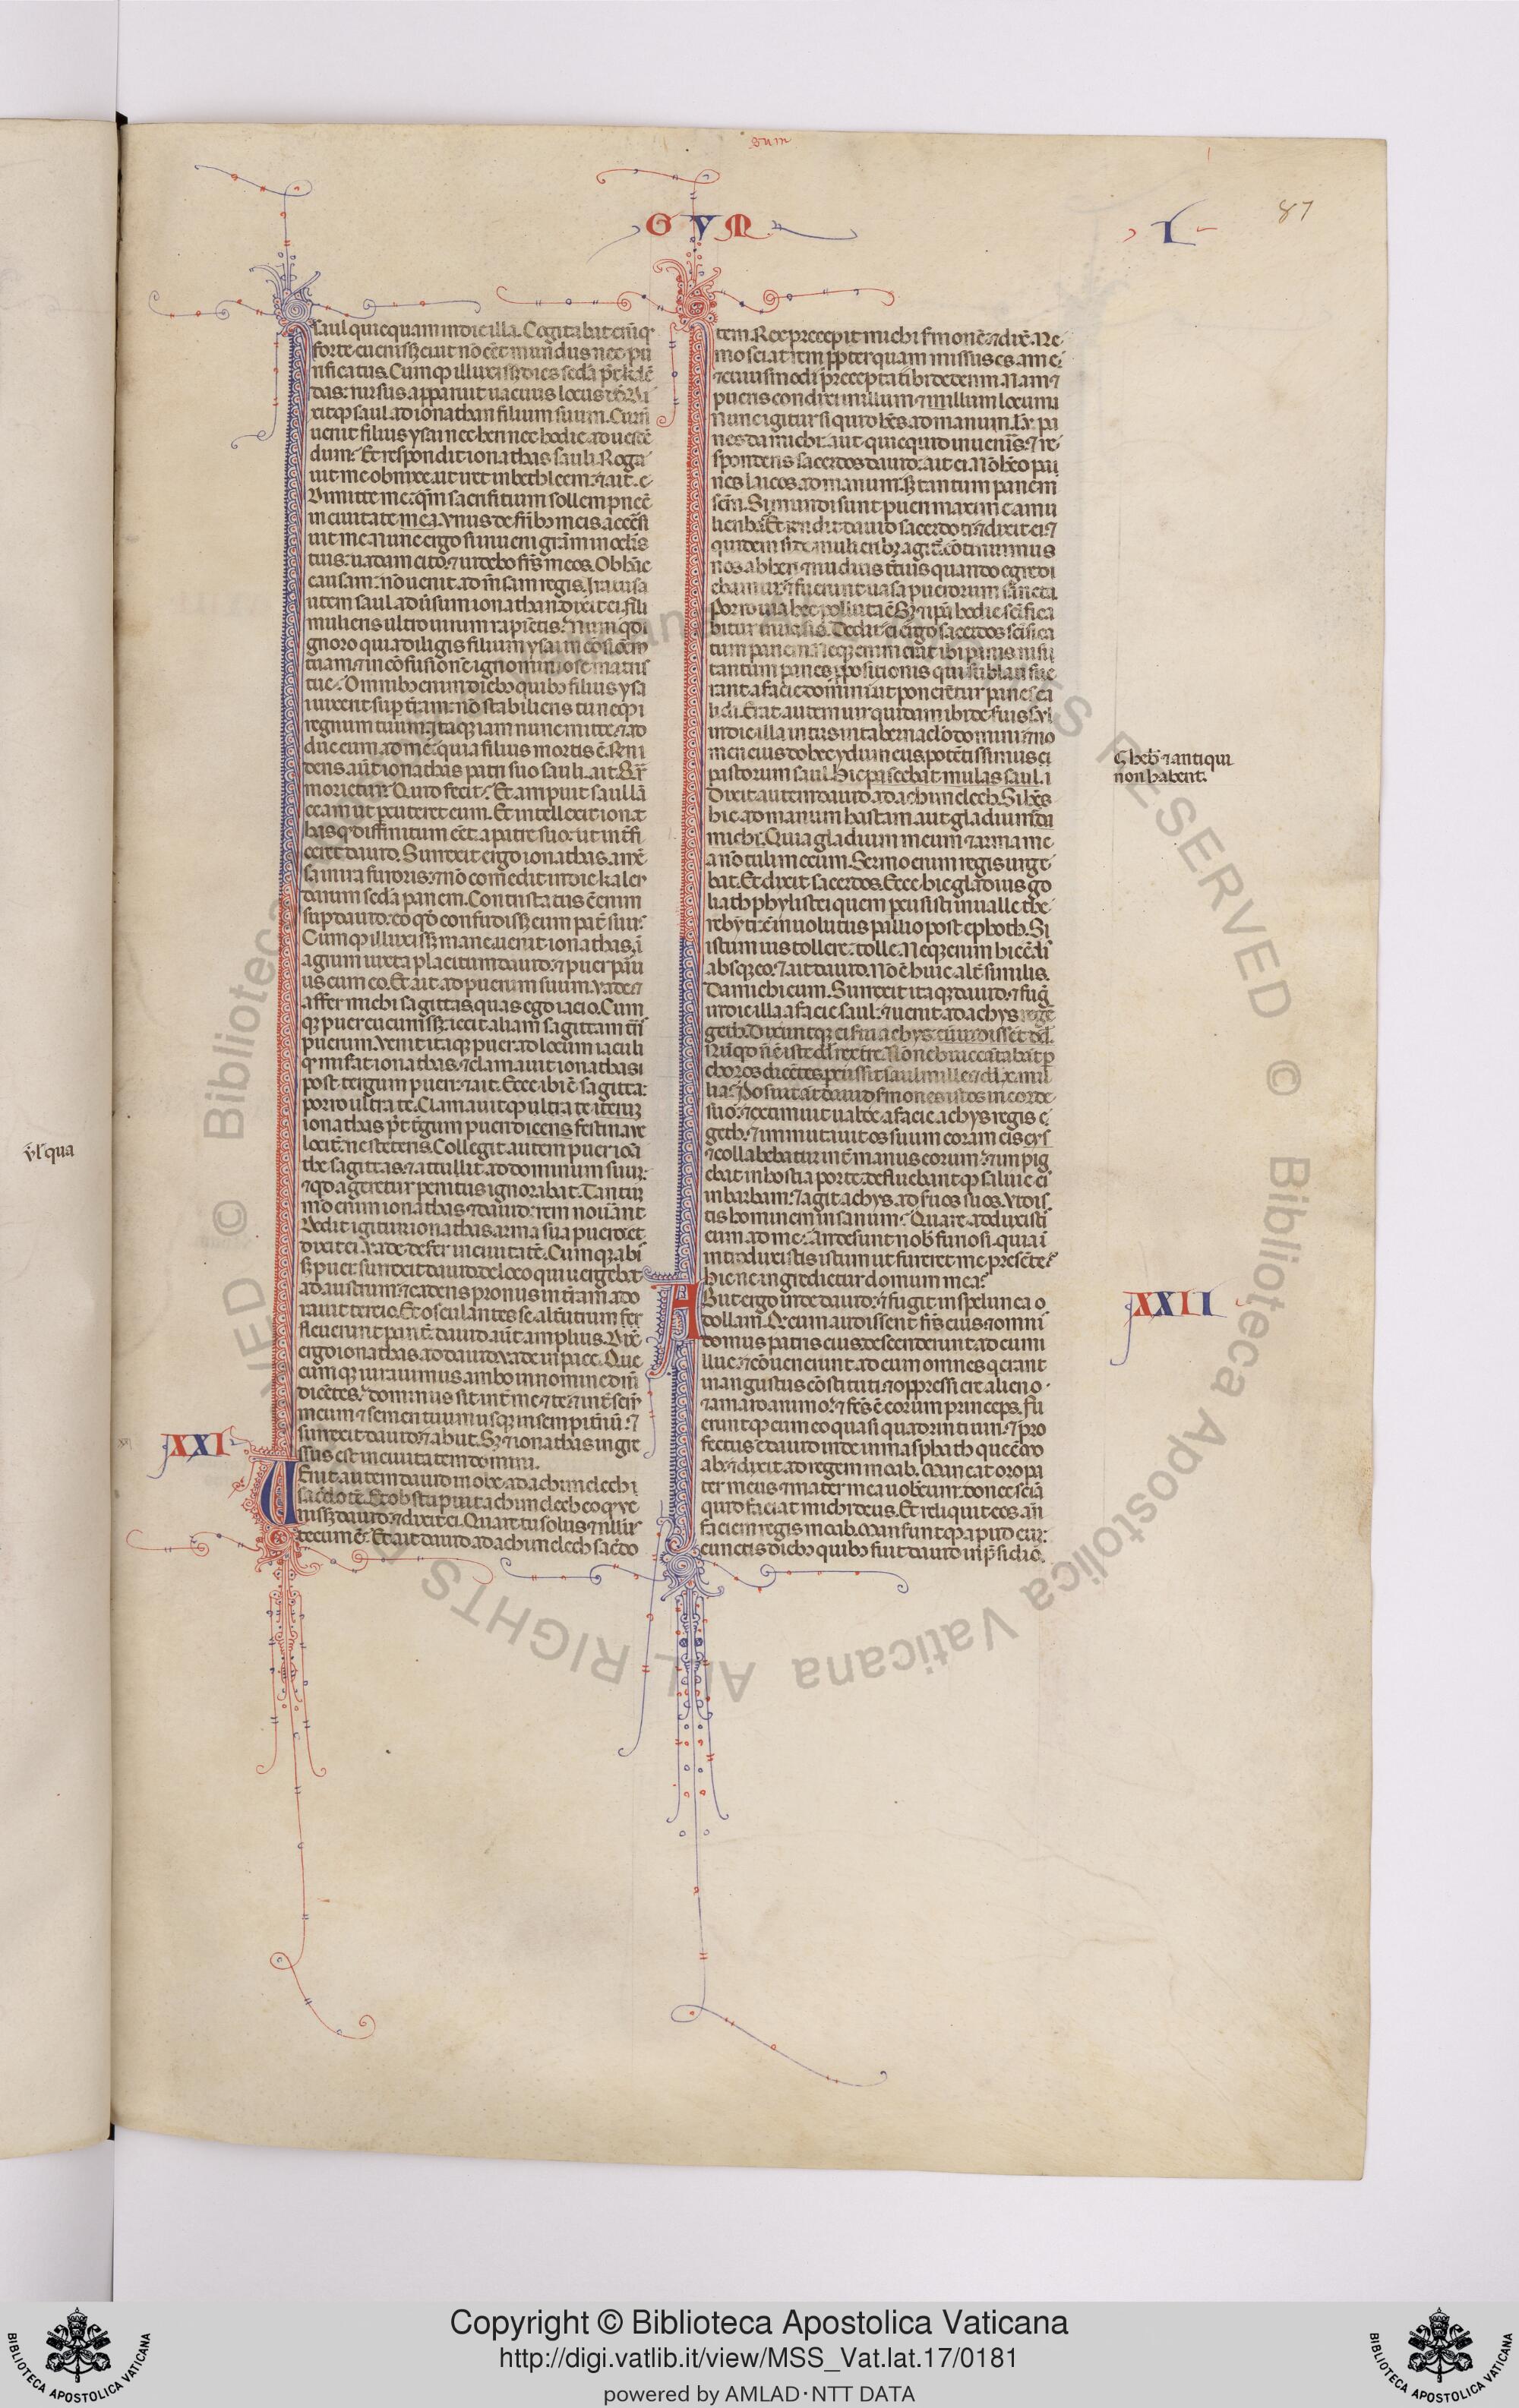 oum
OVM
I
87
saul quicquam in die illa. Cogitabat eni͂ qͥ
forte euenissꝫ ei ut nō eēt mundus nec pu
rificatus. Cumqꝫ illuxisset dies seda p̄t kalē
das: rursus apparuit uacuus locus dd̄. Di
xitqꝫ saul ad ionathan filium suum. Cur nō
uenit filius ysai nec heri nec hodie ad uescē
dum: Et respondit ionathas sauli. Roga
uit me obnixe ut iret in bethleem: ⁊ ait.
Dimitte me: qm̄ sacrifitium sollempne ē
in ciuitate mea. Vnus de fr̄ibꝰ meis accersi
uit me. Nunc ergo si inueni gr̄am in oclis
tuis: uadam cito: ⁊ uidebo fr̄s meos. Ob hāc
causam: nō uenit ad m̄sam regis. Iratus a
utem saul aduersum ionathan dixit ei. Fili
mulieris ultro uirum rapientis: Numqd i
gnoro quia diligis filium ysai in cōfusiōem
tuam: ⁊ in cōfusionē ignominiose matris
tue: Omnibꝰ enim diebꝰ quibꝰ filius ysai
uixerit sup tr̄am: nō stabilieris tu neqꝫ
regnum tuum. Itaqꝫ iam nunc mitte: ⁊ ad
duc eum ad me: quia filius mortis ē. Respō
dens aut̄ ionathas patri suo sauli ait. Qr̄
morietur: Quid fecit: Et arripuit saul lā
ceam ut percuteret eum. Et intellexit ionat
has qꝫ diffinitum eēt a patre suo: ut int̄fi
ceret dauid. Surrexit ergo ionathas a mē
sa in ira furoris: ⁊ nō comedit in die kalen
darum seda panem. Contristatus ē enim
sup dauid: eo qd̄ confudissꝫ eum pat̄ suus.
Cumqꝫ illuxissꝫ mane: uenit ionathas ī
agrum iuxta placitum dauid: ⁊ puer paru
us cum eo. Et ait ad puerum suum. Vade ⁊
affer michi sagittas quas ego iacio. Cum
qꝫ puer cucurrissꝫ: iecit aliam sagittam trās
puerum. Venit itaqꝫ puer ad locum iaculi
qd̄ miserat ionathas: ⁊ clamauit ionathas
post tergum pueri: ⁊ ait. Ecce ibi ē sagitta:
porro ultra te. Clamauitqꝫ ultra te iterum
ionathas p̄t t̄gum pueri dicens festina ve
locit̄: ne steteris. Collegit autem puer iona
the sagittas: ⁊ attulit ad dominum suum:
⁊ qd ageretur penitus ignorabat. Tantum
mō enim ionathas ⁊ dauid: rem nouerant
Dedit igitur ionathas arma sua puero: et
dixit ei. Vade defer in ciuitatē. Cumqꝫ abis
sꝫ puer: surrexit dauid de loco qui uergebat
ad austrum: ⁊ cadens pronus in tr̄am ado
rauit tercio. Et osculantes se alt̄utrum: fer
fleuerunt parit̄: dauid aut̄ amplius. Dixit
ergo ionathas ad dauid. Vade in pace. Que
cumqꝫ iurauimus ambo in nomine dn̄i
dicētes: dominus sit int̄ me ⁊ te: ⁊ int̄ semē
meum ⁊ semen tuum usqꝫ in sempit̄nū: ⁊
surrexit dauid: ⁊ abiit. Sꝫ ⁊ ionathas ingre
ssus est in ciuitatem domini.
XXI
Venit autem dauid in nobe ad achimelech
sac̄dotē. Et obstupuit achimelech eo qd̄ ve
nissꝫ dauid: ⁊ dixit ei. Quare tu solus ⁊ nullus
tecum ē: Et ait dauid ad achimelech sac̄do
tem. Rex precepit michi sermonē: ⁊ dix̄. Ne
mo sciat rem ꝓpter quam missus es a me:
⁊ cuiusmodi precepta tibi dederim. Nam ⁊
pueris condixi in illum ⁊ in illum locum:
Nunc igitur si quid hēs ad manum. Vꝫ pa
nes da michi: aut quicquid inueneris: ⁊ re
spondens sacerdos dauid: ait ei. Nō hēo pa
nes laicos ad manum: sꝫ tantum panem
scm̄. Si mundi sunt pueri maxime a mu
lieribꝰ. Et rn̄dit dauid sacerdoti: ⁊ dixit ei: ⁊
quidem si de mulieribꝰ agit̄: cōtinuimus
nos ab heri ⁊ nudius tercius quando egredi
ebamur: ⁊ fuerunt uasa puerorum sancta.
Porro uia hec polluta ē. Sꝫ ⁊ ipa hodie scīfica
bitur in uasis. Dedit ei ergo sacerdos scīfica
tum panem. Neqꝫ enim erat ibi panis nisi
tantum panes ꝓpositionis qui sublati fue
rant a facie domini: ut ponerentur panes ca
lidi. Erat autem uir quidam ibi de suis saul
in die illa intus in tabernaclo domini: ⁊ no
men eius dohec ydumeus: potētissimus ei
pastorum saul. Hic pascebat mulas saul.
Dixit autem dauid ad achimelech. Si hēs
hic ad manum hastam aut gladium: da
michi. Quia gladium meum ⁊ arma me
a nō tuli mecum. Sermo enim regis urge
bat. Et dixit sacerdos. Ecce hic gladius go
liath phylistei quem percussisti in ualle the
rebynti: ē inuolutus pallio post ephoth. Si
istum uis tollere: tolle. Neqꝫ enim hic ē alius
absqꝫ eo: ⁊ ait dauid. Nō ē huic alt̄ similis.
Da michi eum. Surrexit itaqꝫ dauid: ⁊ fugit
in die illa a facie saul: ⁊ uenit ad achys regē
geth. Dixeruntqꝫ ei serui achys: cum uidissent dd̄.
Nūqd nō ē iste dd̄ rex tr̄e. Nonne huic cantabant p
choros dicētes: percussit saul mille: ⁊ dd̄ x. mil
lia: Posuit aut̄ dauid sermones istos in corde
suo: ⁊ extimuit ualde a facie achys regis
geth. ⁊ inmutauit os suum coram eis:
⁊ collabebatur int̄ manus eorum: ⁊ impig
ebat in hostia porte: defluebantqꝫ saliue ei
in barbam: ⁊ ait achys ad suos suos. Vidis
tis hominem insanum: Quare adduxisti
eum ad me: An desunt nob̄ furiosi: quia ī
introduxistis istum ut fureret me presēte:
hicne ingredietur domum mea:
Abiit ergo inde dauid: ⁊ fugit in spelunca o
dollam. Qd̄ cum audissent fr̄s eius ⁊ omnis
domus patris eius: descenderunt ad eum i
lluc: ⁊ cōuenerunt ad eum omnes qͥ erant
in angustiis cōstituti: ⁊ oppressi ere alieno:
⁊ amaro animo: ⁊ fcs̄ ē eorum princeps. Fu
eruntqꝫ cum eo quasi quadringenti uiri: ⁊ pro
fectus ē dauid inde in masphath que ē mo
ab: ⁊ dixit ad regem moab. Maneat oro pa
ter meus ⁊ mater mea uobcum: donec sciā
quid faciat michi deus. Et reliquit eos an̄
faciem regis moab. Manseruntqꝫ apud eum:
cunctis diebꝰ quibꝰ fuit dauid in p̄sidio.
heb̄ ⁊ antiqui
non habent.
XXII
ul̄ qua
Copyright © Biblioteca Apostolica Vaticana
http://digi.vatlib.it/view/MSS_Vat.lat.17/0181
powered by AMLAD·NTT DATA
BIBLIOTECA APOSTOLICA VATICANA
BIBLIOTECA APOSTOLICA VATICANA
© Biblioteca Apostolica Vaticana ALL RIGHTS RESERVED